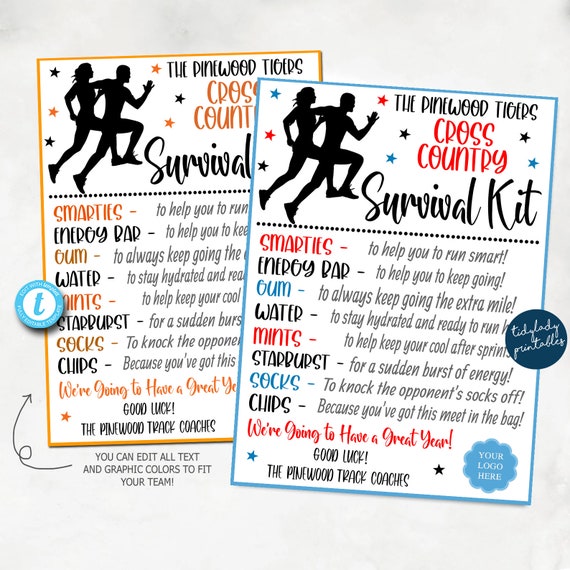 THE PINEWOOD TIGERS
CROSS
COUNTRY
Survival
SMARTIES - to help you to run
ENERGY BAR - to help you to keep
GUM - to always keep going the
WATER - to stay hydrated and ready
MINTS - to help keep your cool
STARBURST - for a sudden burst
SOCKS - To knock the opponent
CHIPS - Because you've got this
We're Going to Have a Great Year
GOOD LUCK!
THE PINEWOOD TRACK COACHES
THE PINEWOOD TIGERS
CROSS
COUNTRY
Survival Kit
SMARTIES - to help you to run smart!
ENERGY BAR - to help you to keep going!
GUM - to always keep going the extra mile!
WATER - to stay hydrated and ready to run
MINTS - to help keep your cool after
STARBURST - for a sudden burst of energy!
SOCKS - To knock the opponent's socks off!
CHIPS - Because you've got this meet in the bag!
We're Going to Have a Great Year!
GOOD LUCK!
THE PINEWOOD TRACK COACHES
YOUR
LOGO
HERE
tidylady
printables
t
YOU CAN EDIT ALL TEXT
AND GRAPHIC COLORS TO FIT
YOUR TEAM!